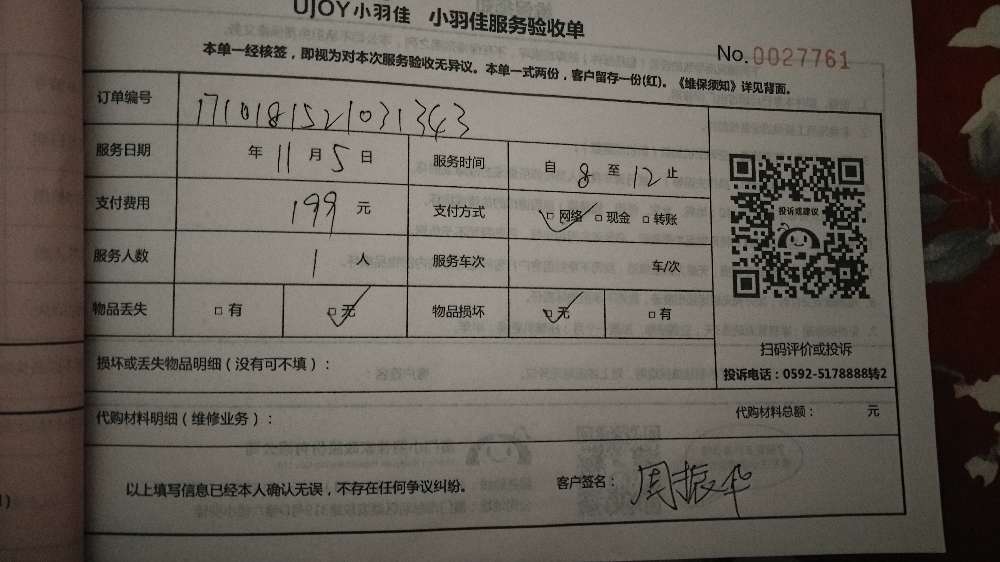 UJOY小羽佳 小羽佳服务验收单
No. 0027761
本单一经核签，即视为对本次服务验收无异议。本单一式两份，客户留存一份(红)。《维保须知》详见背面。
订单编号 1710181521031343
服务日期 年 11 月 5 日 服务时间 自 8 至 12 止
支付费用 199 元 支付方式 □网络 □现金 □转账
服务人数 1 人 服务车次 车/次
物品丢失 □有 □无 物品损坏 □无 □有
投诉或建议
扫码评价或投诉
投诉电话：0592-5178888转2
损坏或丢失物品明细（没有可不填）：
代购材料明细（维修业务）： 代购材料总额： 元
以上填写信息已经本人确认无误，不存在任何争议纠纷。 客户签名：周振华